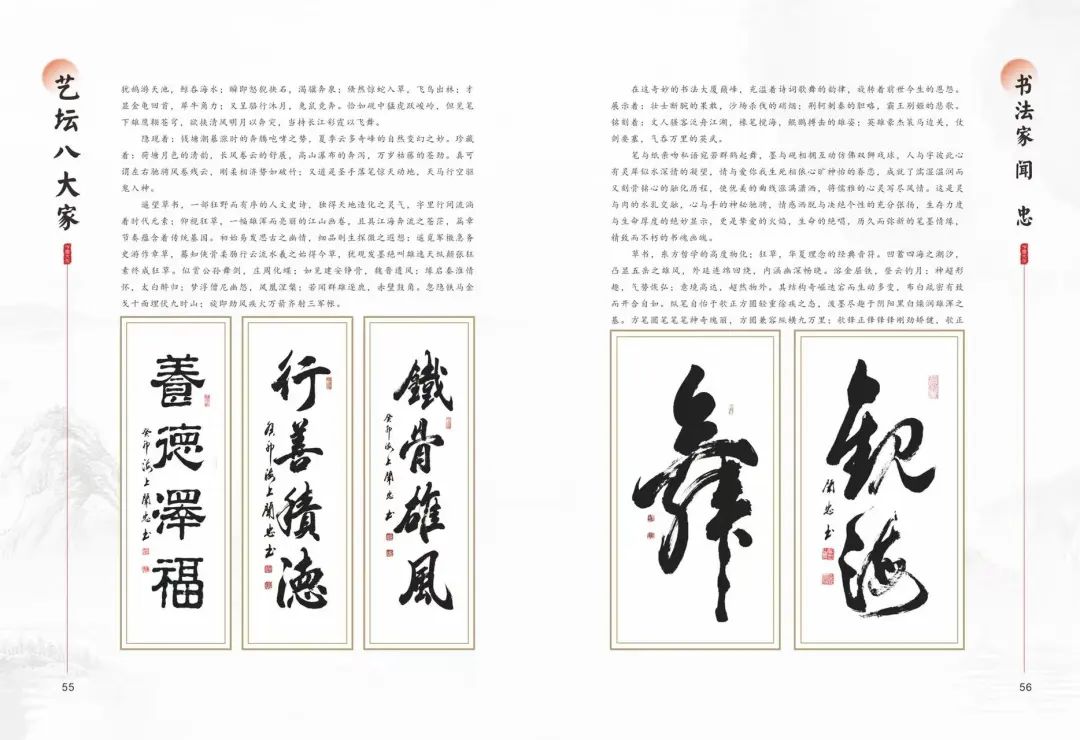 艺坛八大家
犹鹤游天池，鲸吞海水；瞬即怒猊抉石，渴骥奔泉；倏然惊蛇入草，飞鸟出林；才
显金龟回首，犀牛角力；又呈骆行沐月，兔鼠竞奔。恰如砚中猛虎跃峻岭，但见笔
下雄鹰翱苍穹，欲挟清风明月以奔突，当持长江彩霞以飞舞。
隐现着：钱塘潮暴涨时的奔腾咆哮之势，夏季云多奇峰的自然变幻之妙。珍藏
着：荷塘月色的清韵，长风卷云的舒展，高山瀑布的奔泻，万岁枯藤的苍劲。真可
谓左右驰骋风卷残云，刚柔相济势如破竹；又道是圣手落笔惊天动地，天马行空驱
鬼入神。
遥望草书，一部狂野而有序的人文史诗，独得天地造化之灵气，字里行间流淌
着时代元素；仰视狂草，一幅雄浑而亮丽的江山画卷，且具江海奔流之苍茫，篇章
节奏蕴含着传统基因。初始易发思古之幽情，细品则生探微之遐想；遥觅军檄急务
史游作章草，藉知侠骨柔肠行云流水羲之始得今草，犹观发墨绝叫雄逸天纵颠张狂
素终成狂草。似赏公孙舞剑，庄周化蝶；如见建安铮骨，魏晋遗风；缘启秦淮情
怀，太白醉归；梦浮僧尼幽怨，凤凰涅槃；若闻群雄逐鹿，赤壁鼓角。忽隐铁马金
戈十面埋伏九时山；旋即助风疾火万箭齐射三军帐。
養德澤福
癸卯海上闻忠书
行善積德
癸卯海上闻忠书
鐵骨雄風
癸卯海上闻忠书
55
书法家 闻 忠
在这奇妙的书法大厦巅峰，充溢着诗词歌舞的韵律，旋转着前世今生的恩怨。
展示着：壮士断腕的果敢，沙场杀伐的硝烟；荆轲刺秦的胆略，霸王别姬的悲歌。
铭刻着：文人骚客泛舟江湖，椽笔搅海，鲲鹏搏击的雄姿；英雄豪杰策马边关，仗
剑要塞，气吞万里的英武。
笔与纸亲吻私语宛若群鸥起舞，墨与砚相拥互动仿佛双狮戏球，人与字彼此心
有灵犀似水深清的凝望，情与爱你我生死相依心旷神怡的眷恋，成就了濡湿温润而
又刻骨铭心的融化历程，使优美的曲线涨满潇洒，将儒雅的心灵写尽风情。这是灵
与肉的水乳交融，心与手的神秘驰骋，情感洒脱与决绝个性的充分张扬，生存力度
与生命厚度的绝妙显示，更是挚爱的火焰，生命的绝唱，历久而弥新的笔墨情缘，
精致而不朽的书魂幽魄。
草书，东方哲学的高度物化；狂草，华夏理念的经典音符。回蓄四海之潮汐，
凸显五岳之雄风，外延连绵回绕，内涵幽深畅晓。溶金屑铁，登云钓月；神超形
趣，气势恢弘；意境高远，超然物外。其结构奇崛迭宕而生动多变，布白疏密有致
而开合自如。纵笔自怡于欹正方圆轻重徐疾之态，泼墨尽趣于阴阳黑白燥润雄浑之
基。方笔圆笔笔笔神奇瑰丽，方圆兼容纵横九万里；欹锋正锋锋锋刚劲矫健，欹正
舞
觀海
闻忠书
56